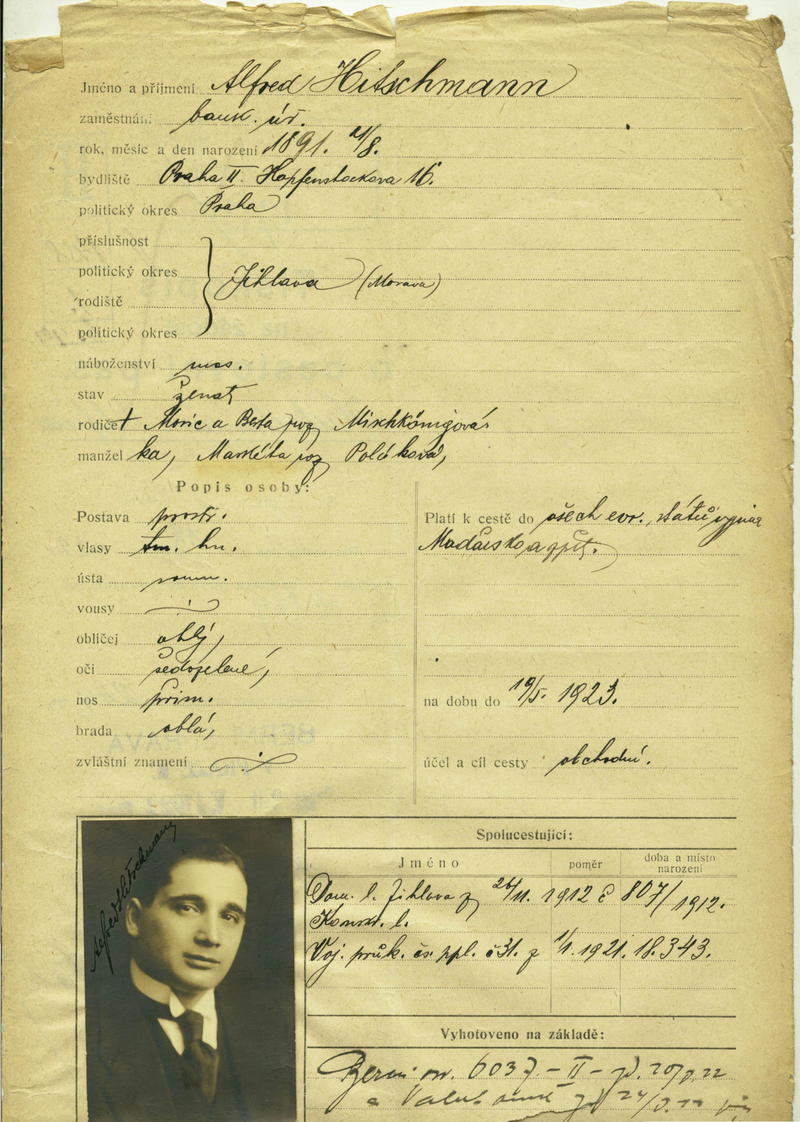 Jméno a příjmení Alfred Hitschmann
zaměstnání bank. úř.
rok, měsíc a den narození 1891. 21/8.
bydliště Praha II. Hopfenstockova 16.
politický okres Praha
příslušnost
politický okres Jihlava (Morava)
rodiště
politický okres
náboženství mos.
stav ženat
rodiče † Moric a Berta roz. Mischkönigová
manžel ka, Markéta roz. Poláková,
Popis osoby:
Postava prostř.
vlasy tm. hn.
ústa soum.
vousy
obličej oblý,
oči šedozelené,
nos přim.
brada oblá,
zvláštní znamení
Platí k cestě do všech evr. států vyjma
Maďarsko a zpět.
na dobu do 19/5. 1923.
účel a cíl cesty obchodní.
Alfred Hitschmann
Spolucestující:
Jméno poměr doba a místo narození
Dom. l. Jihlava z 26/11. 1912 č 807/1912.
Konskr. l.
Voj. průk. čs. ppl. č 31. z 1/1. 1921. 18.343.
Vyhotoveno na základě:
6037 - II -